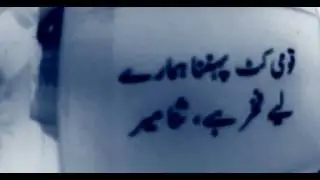 قومی کٹ پہننا ہمارے
لیے فخر ہے، ثنا میر